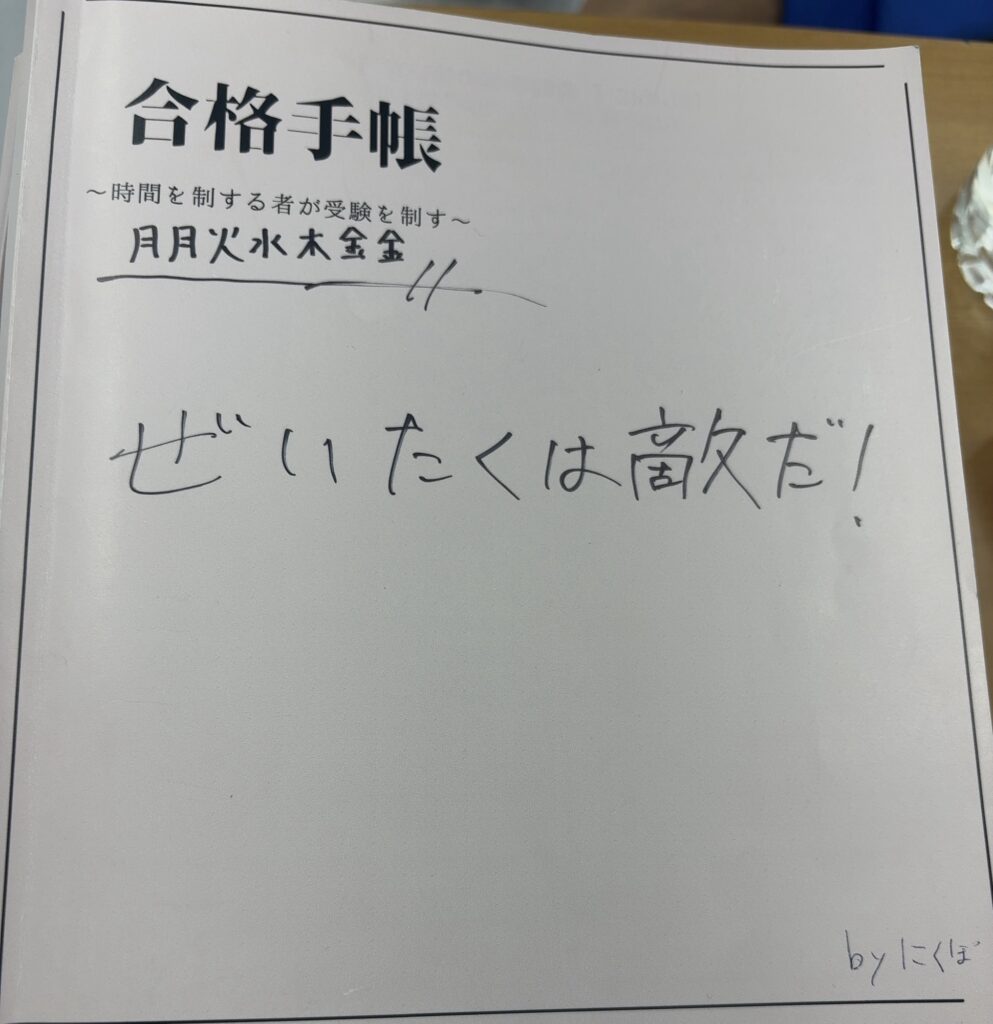 合格手帳
～時間を制する者が受験を制す～
月月火水木金金
ぜいたくは敵だ!
by にくぼ